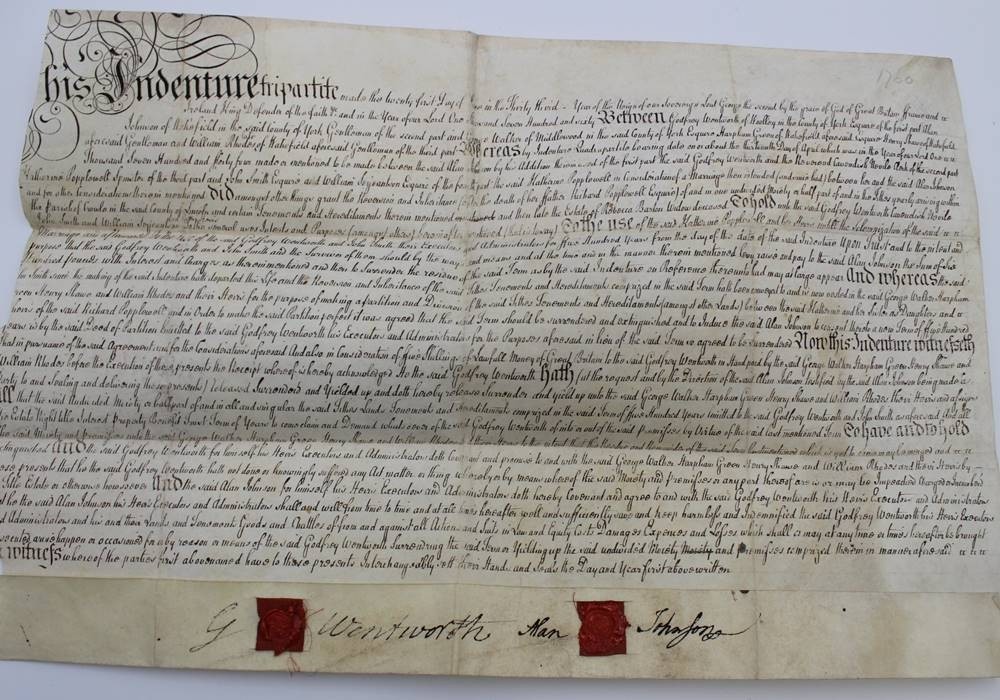 1760
his Indenture tripartite made this twenty first Day of in the Thirty third Year of the Reign of our Sovereign Lord George the second by the grace of God of Great Britain France and
Ireland King Defender of the faith &c and in the Year of our Lord One thousand Seven Hundred and sixty Between Godfrey Wentworth of Woolley in the County of York Esquire of the first part Alan
Johnson of Wakefield in the said County of York Gentleman of the second part and George Walker of Middlewood in the said County of York Esquire Harpham Green of Wakefield aforesaid Esquire Henry Shaw of Wakefield
aforesaid Gentleman and William Rhodes of Wakefield aforesaid Gentleman of the third part Whereas by Indenture Quadrupartite bearing date on or about the Thirteenth Day of April which was in the Year of our Lord One
Thousand Seven Hundred and forty four made or mentioned to be made between the said Alan Johnson by his Addition therein used of the first part the said Godfrey Wentworth and the Reverend Cavendish Nevile Clerk of the second part
Katharine Popplewell Spinster of the third part and John Smith Esquire and William Esquire of the fourth part the said Katharine Popplewell in Consideration of a Marriage then intended between her and the said Alan Johnson
and for other Considerations therein mentioned Did amongst other things grant the Reversion and Inheritance the death of her father Richard Popplewell Esquire of and in one undivided Moiety or half part of and in the Tithes yearly arising within
the Parish of in the said County of Lincoln and certain Tenements and Hereditaments therein mentioned and then late the Estate of Rebecca Widow deceased To hold unto the said Godfrey Wentworth Cavendish Nevile
John Smith and William to the several uses Intents and Purposes (amongst others) hereinafter (that is to say) To the use of the said Katharine Popplewell and her Heirs until the solemnization of the said
Marriage and the said Godfrey Wentworth and John Smith their Executors Administrators for Five Hundred Years from the day of the date of the said Indenture Upon Trust and to the intent and
purpose that the said Godfrey Wentworth and John Smith and the Survivor of them should by the ways and means and at the time and in the manner therein mentioned raise and pay to the said Alan Johnson the Sum of Six
Hundred pounds with Interest and Charges as therein mentioned and then to Surrender the residue of the said Term as by the said Indenture on Reference thereunto had may at large appear And whereas the said
John Smith since the making of the said Indenture hath departed this Life and the Reversion and Inheritance of the said Tithes Tenements and Hereditaments comprized in the said Term hath been conveyed to and is now vested in the said George Walker Harpham
Green Henry Shaw and William Rhodes and their Heirs for the purpose of making a partition and Division of the said Tithes Tenements and Hereditaments (amongst other Lands) between the said Katharine and her Sister as Daughters and
heirs of the said Richard Popplewell and in Order to make the said Partition perfect it was agreed that the said Term should be surrendered and extinguished and to Induce the said Alan Johnson to consent thereto a new Term of five Hundred
Years is by the said Deed of Partition limitted to the said Godfrey Wentworth his Executors and Administrators for the Purposes aforesaid in lieu of the said Term so agreed to be surrendered Now this Indenture witnesseth
that in pursuance of the said Agreement and for the Considerations aforesaid And also in Consideration of five Shillings of Lawfull Money of Great Britain to the said Godfrey Wentworth in Hand paid by the said George Walker Harpham Green Henry Shaw and
William Rhodes before the Execution of these presents the Receipt whereof is hereby acknowledged He the said Godfrey Wentworth Hath (at the request and by the Direction of the said Alan Johnson testified by the said Alan Johnson being made a
Party to and Sealing and delivering these presents) released Surrendered and Yielded up and doth hereby release Surrender and yield up unto the said George Walker Harpham Green Henry Shaw and William Rhodes their Heirs and assigns
All that the said undivided Moiety or half part of and in all and singular the said Tithes Lands Tenements and Hereditaments comprized in the said Term of five Hundred Years limitted to the said Godfrey Wentworth and John Smith as aforesaid And all
the Estate Right title Interest Property Benefit Trust Term of Years to come claim and Demand whatsoever of the said Godfrey Wentworth of into or out of the said premises by Virtue of the said last mentioned Term To have and to hold
the said Moiety and Premises unto the said George Walker Harpham Green Henry Shaw and William Rhodes their Heirs to the intent that the Residue and
extinguished And the said Godfrey Wentworth for himself his Heirs Executors and Administrators doth Covenant and promise to and with the said George Walker Harpham Green Henry Shaw and William Rhodes and their Heirs by
these presents that he the said Godfrey Wentworth hath not done or knowingly suffered any Act matter or thing whereby or by means whereof the said Moiety and Premises or any part thereof are is or may be Impeached Charged or Incumbered
in Title Estate or otherwise howsoever And the said Alan Johnson for himself his Heirs Executors and Administrators doth hereby Covenant and agree to and with the said Godfrey Wentworth his Heirs Executors and Administrators
that he the said Alan Johnson his Heirs Executors and Administrators Shall and will from time to time and at all times hereafter well and sufficiently save and keep harmless and Indemnified the said Godfrey Wentworth his Heirs Executors
and Administrators and his and their Lands and Tenements Goods and Chattles of from and against all Actions and Suits in Law and Equity Costs Damages Expences and Losses which shall or may at any time or times hereafter be brought
prosecuted arise happen or occasioned for or by reason or means of the said Godfrey Wentworth Surrendring the said Term or Yielding up the said undivided Moiety Moiety and premises comprized therein in manner aforesaid
In witness whereof the parties first abovenamed have to these presents Interchangeably sett their Hands and Seals the Day and Year first above written
G Wentworth Alan Johnson